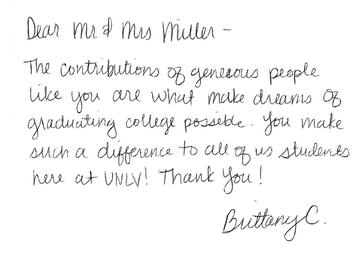 Dear Mr & Mrs Miller –
The contributions of generous people
like you are what make dreams of
graduating college possible. You make
such a difference to all of us students
here at UNLV! Thank you!
Brittany C.